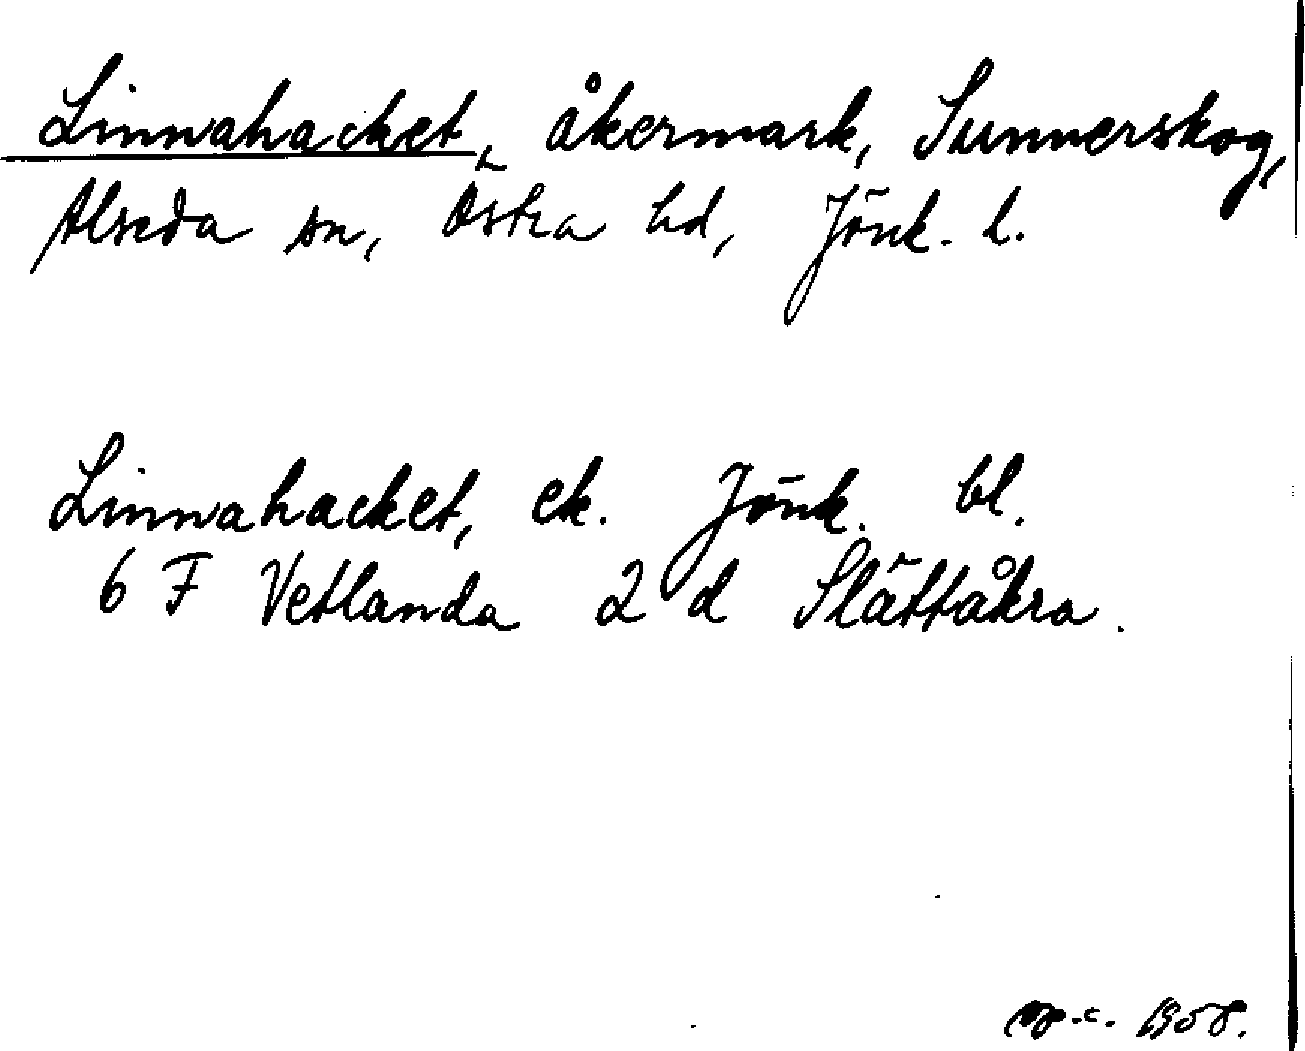 Linnahacket, åkermark, Sunnerskog,
Alseda sn, Östra hd, Jönk. l.
Linnahacket, ek. Jönk. bl.
6 F Vetlanda 2 d Slättåkra.
1958.